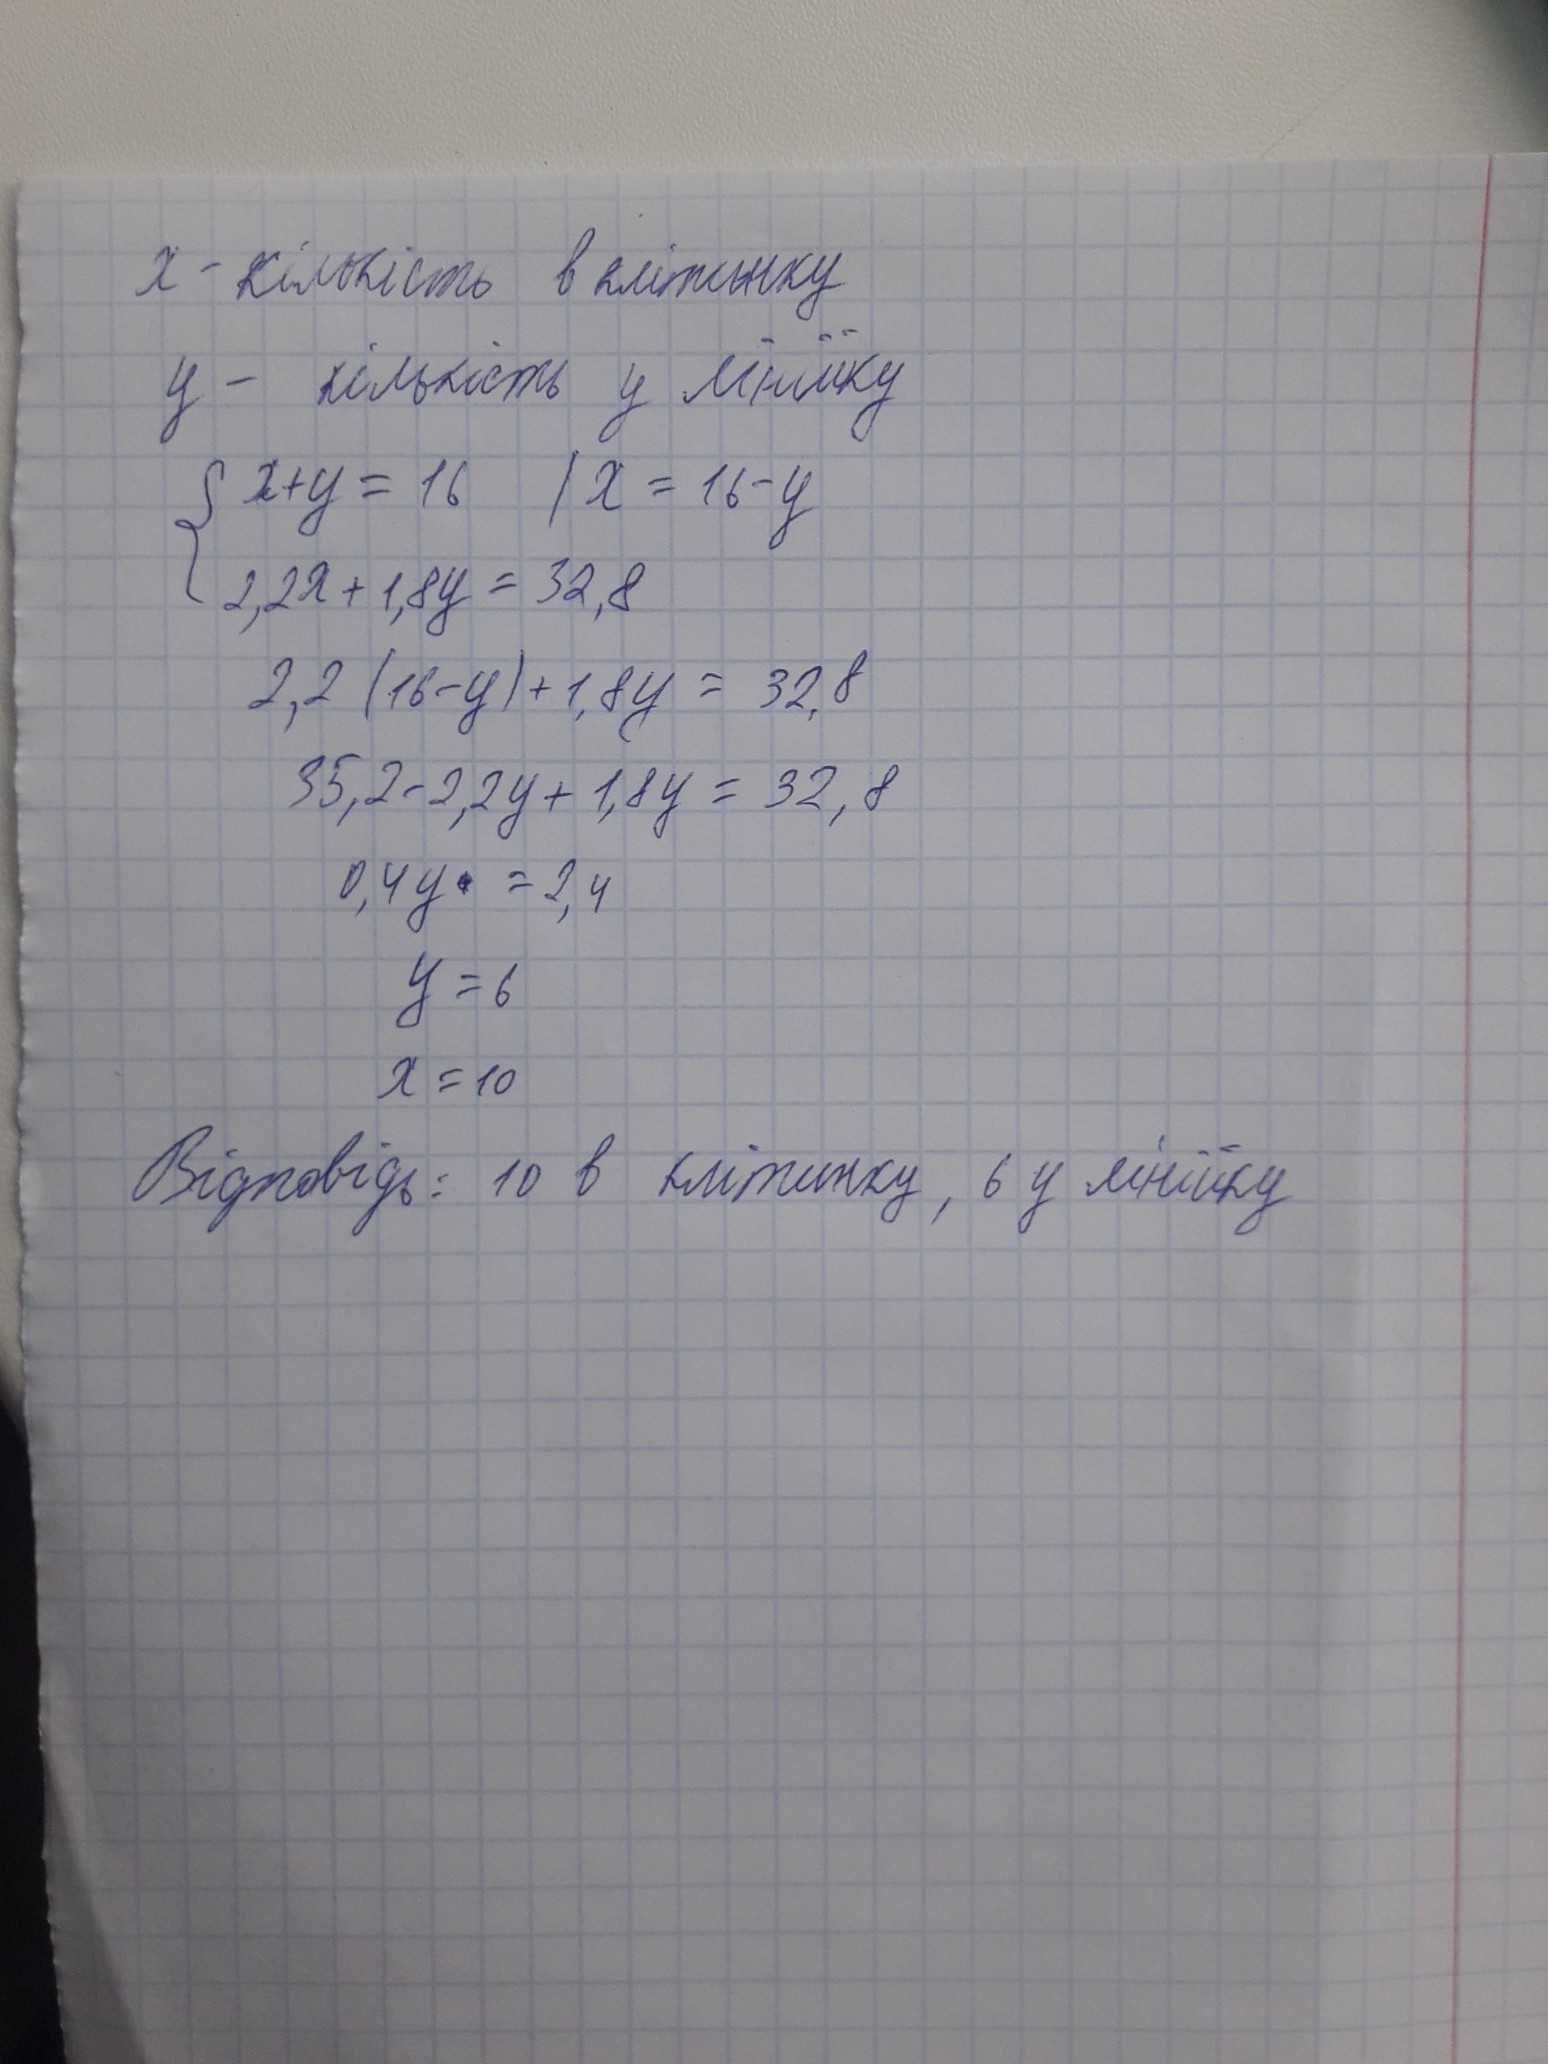 x - кількість в клітинку
y - кількість у лінійку
{ x+y = 16 / x = 16-y
2,2x + 1,8y = 32,8
2,2 (16-y) + 1,8y = 32,8
35,2 - 2,2y + 1,8y = 32,8
0,4y = 2,4
y = 6
x = 10
Відповідь: 10 в клітинку, 6 у лінійку